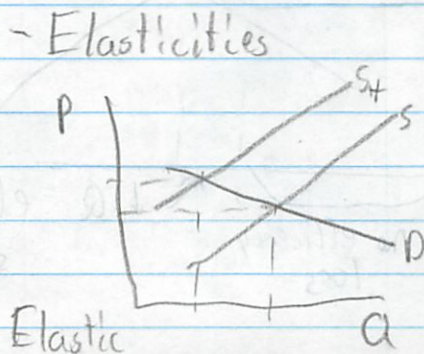 - Elasticities
P
S+
S
D
Elastic
Q